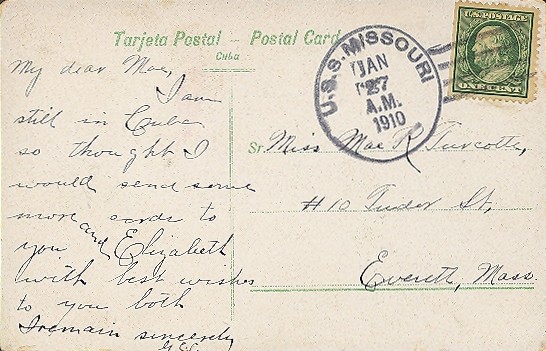 Tarjeta Postal — Postal Card
Cuba
U.S.S. MISSOURI
JAN
27
A.M.
1910
U.S. POSTAGE
ONE CENT
My dear Mae,
I am
still in Cuba
so thought I
would send some
more cards to
you and Elizabeth
with best wishes
to you both
I remain sincerely
Sr. Miss Mae R. Turcotte,
#10 Tudor St,
Everett, Mass.